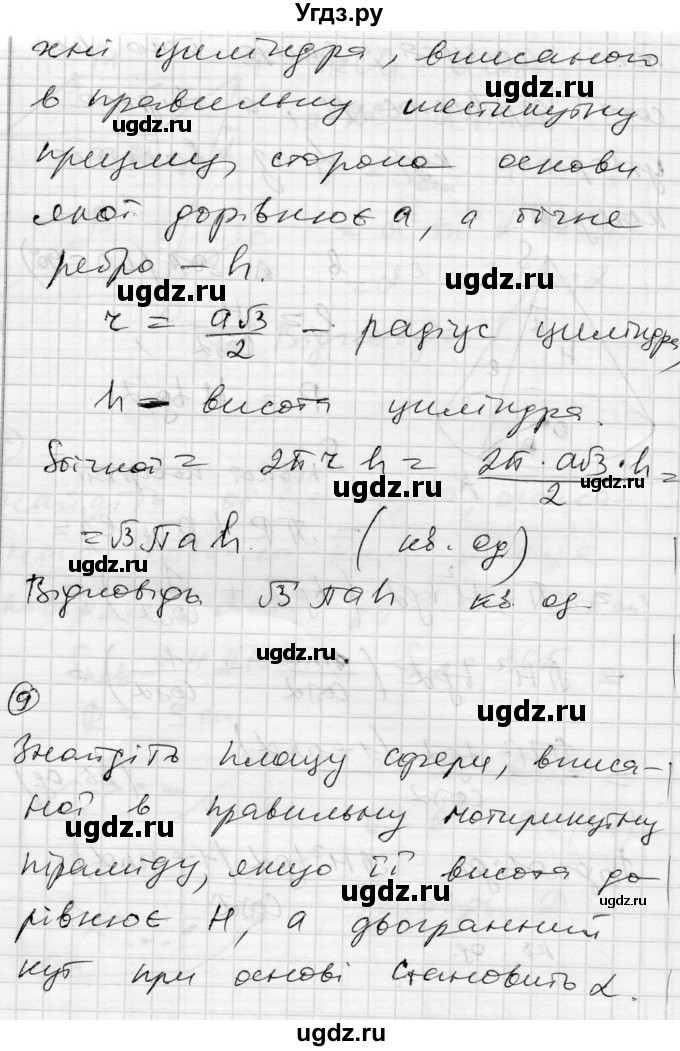 Угдз.ру
хні циліндра, вписаного
ugdz.ru
в правильну шестикутну
ugdz.ru
призму, сторона основи
якої дорівнює a, а бічне
ребро – h.
ugdz.ru
ugdz.ru
r = a√3/2 – радіус циліндра,
h – висота циліндра.
Sбічної = 2πrh = 2π·a√3·h/2 =
ugdz.ru
ugdz.ru
= √3πah. (кв. од)
ugdz.ru
Відповідь √3πah кв. од.
ugdz.ru
9
ugdz.ru
Знайдіть площу сфери, вписа-
ної в правильну чотирикутну
ugdz.ru
піраміду, якщо її висота до
ugdz.ru
ugdz.ru
рівнює H, а двогранний
кут при основі становить α.
ugdz.ru
ugdz.ru